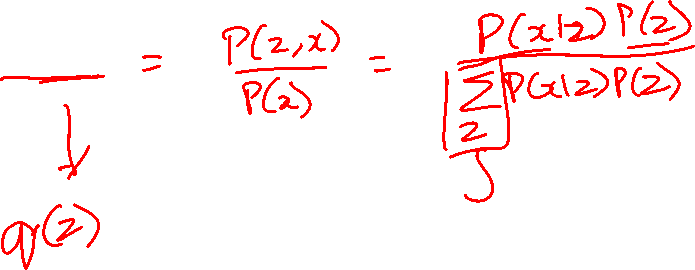 ___ = P(z,x) / P(x) = P(x|z) P(z) / ∑_z P(x|z) P(z)
↓ ∫
q(z)